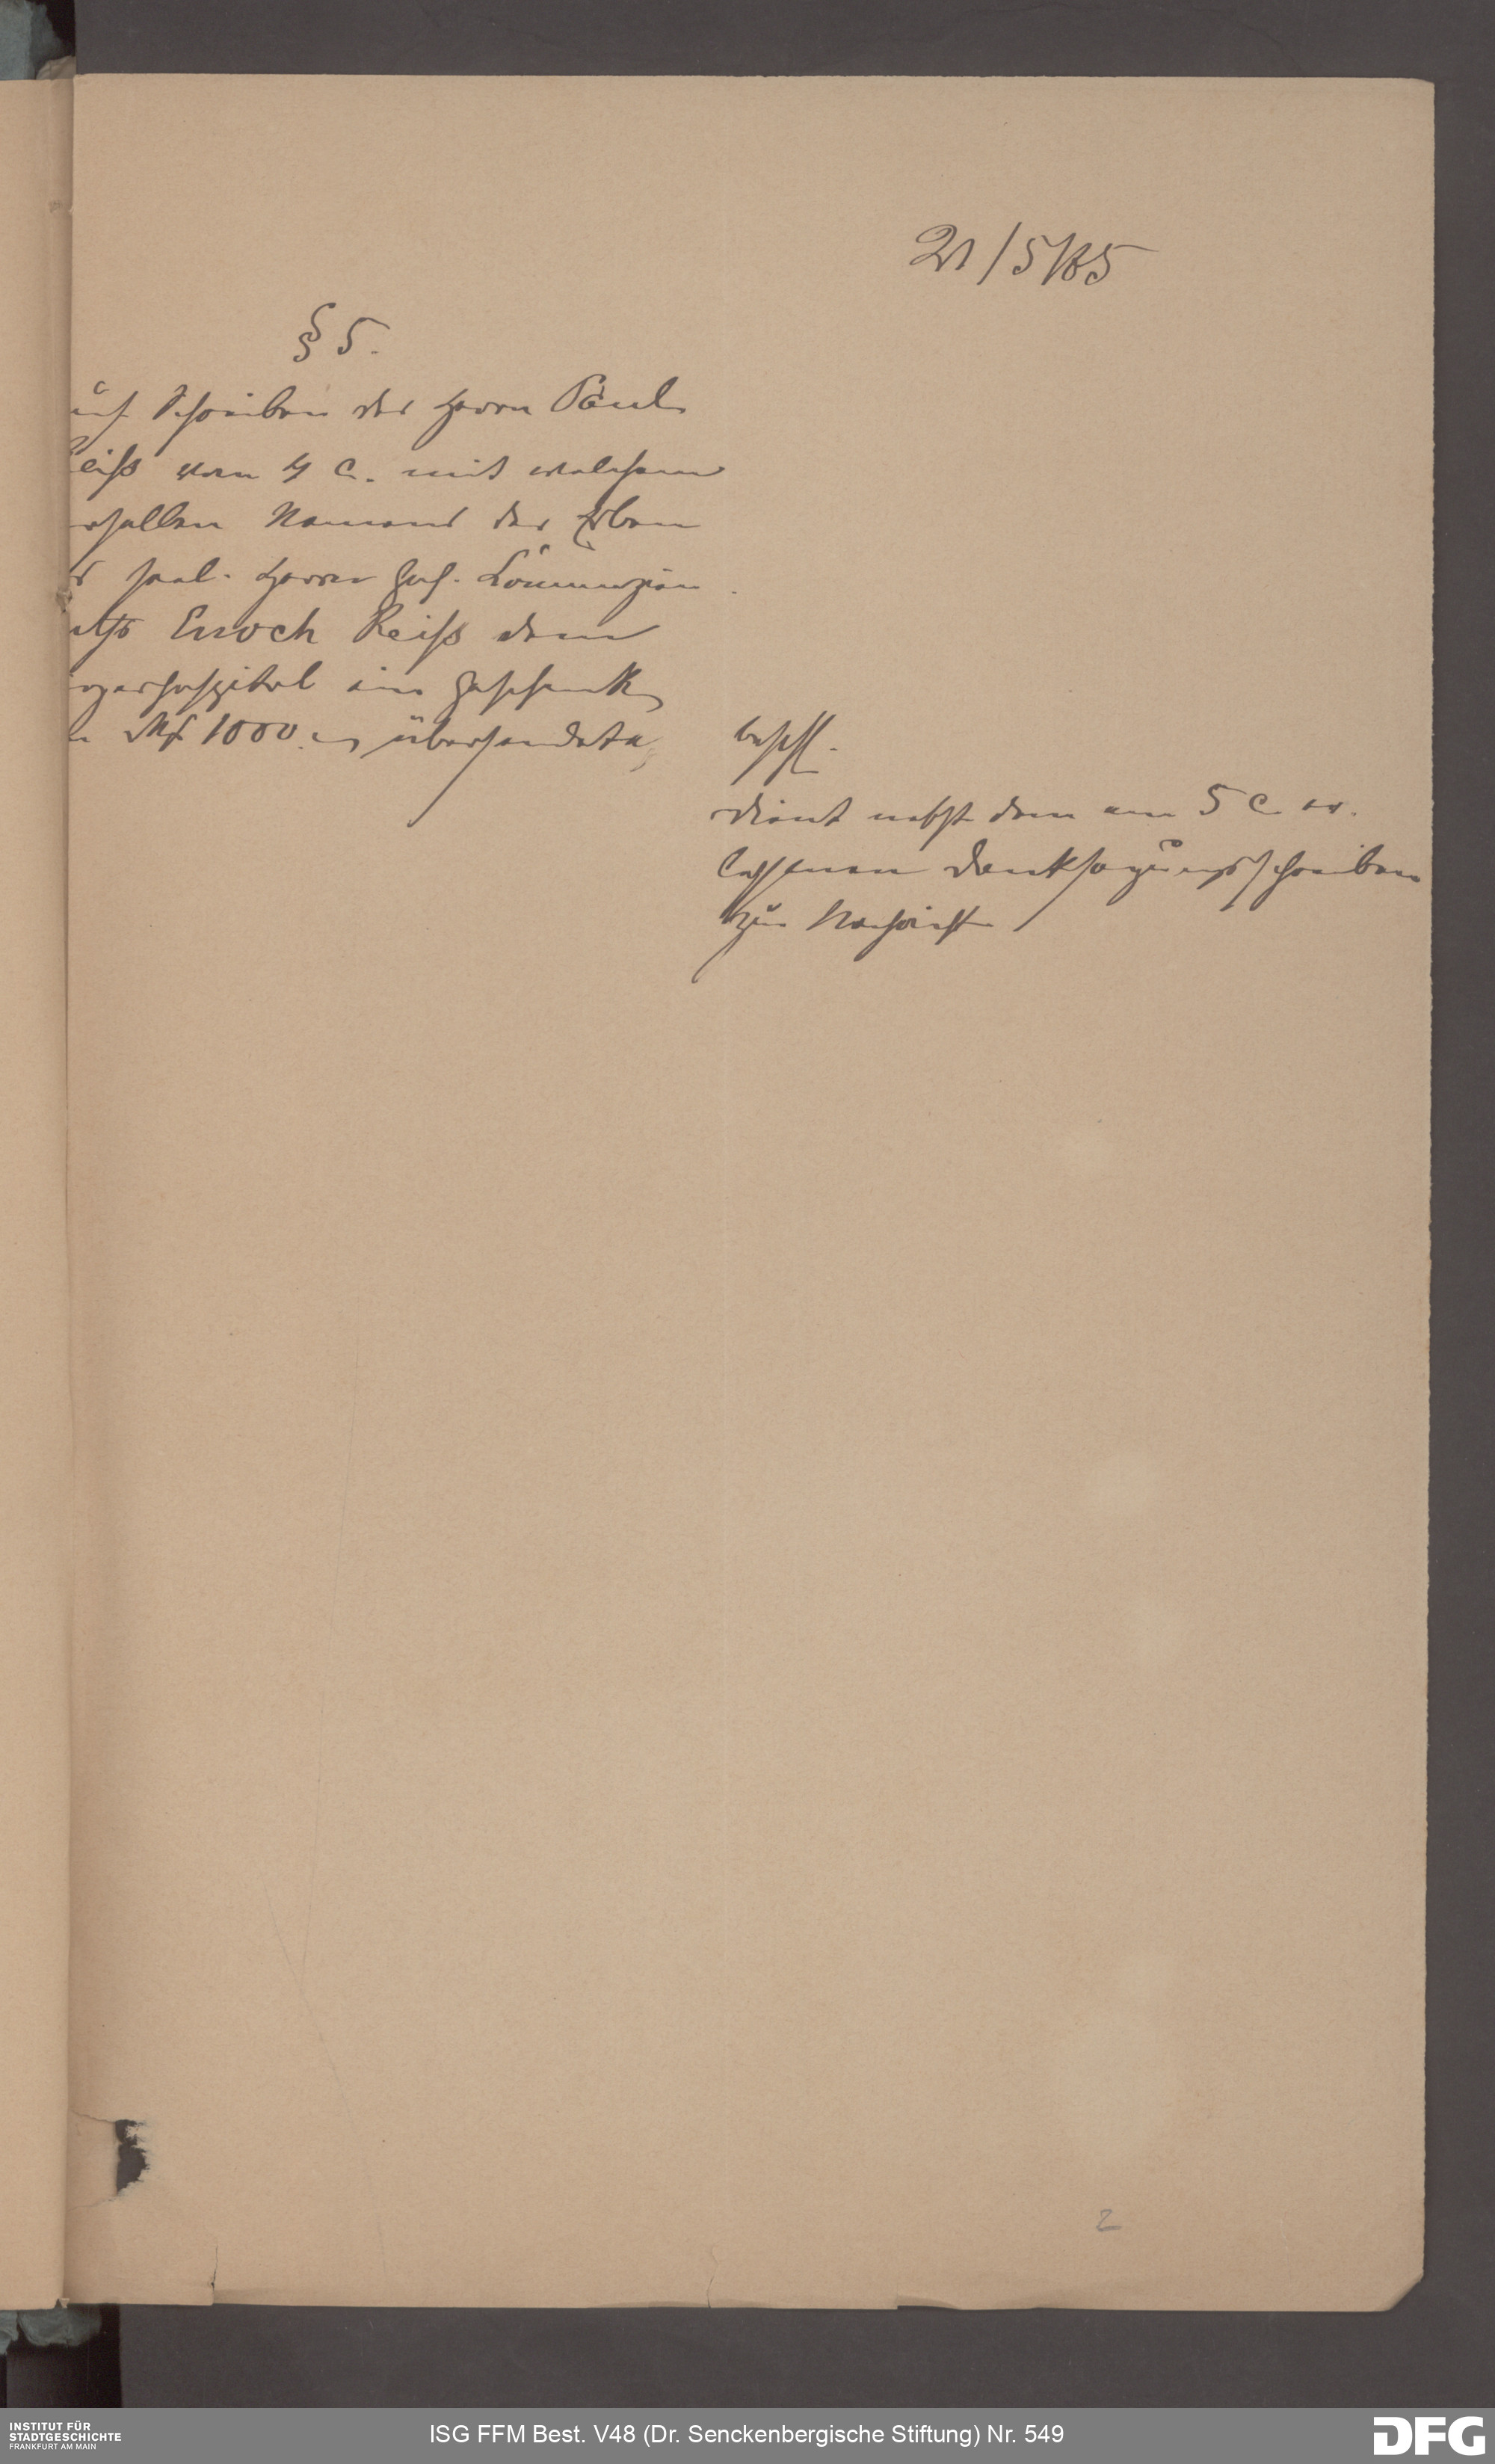 21/5/85
§ 5.
auf Schreiben des Herrn Paul
Reiß vom 4 c. mit welchem
erselben Namens der Erben
s seel. Herrn Geh. Commerzien
aths Enoch Reiß dem
rgerhospital ein Geschenk
n Mk 1000. übersendete
beschl.
dient nebst dem am 5 c. er.
lassenen Danksagungsschreiben
zur Nachricht
2
INSTITUT FÜR
STADTGESCHICHTE
FRANKFURT AM MAIN
ISG FFM Best. V48 (Dr. Senckenbergische Stiftung) Nr. 549
DFG